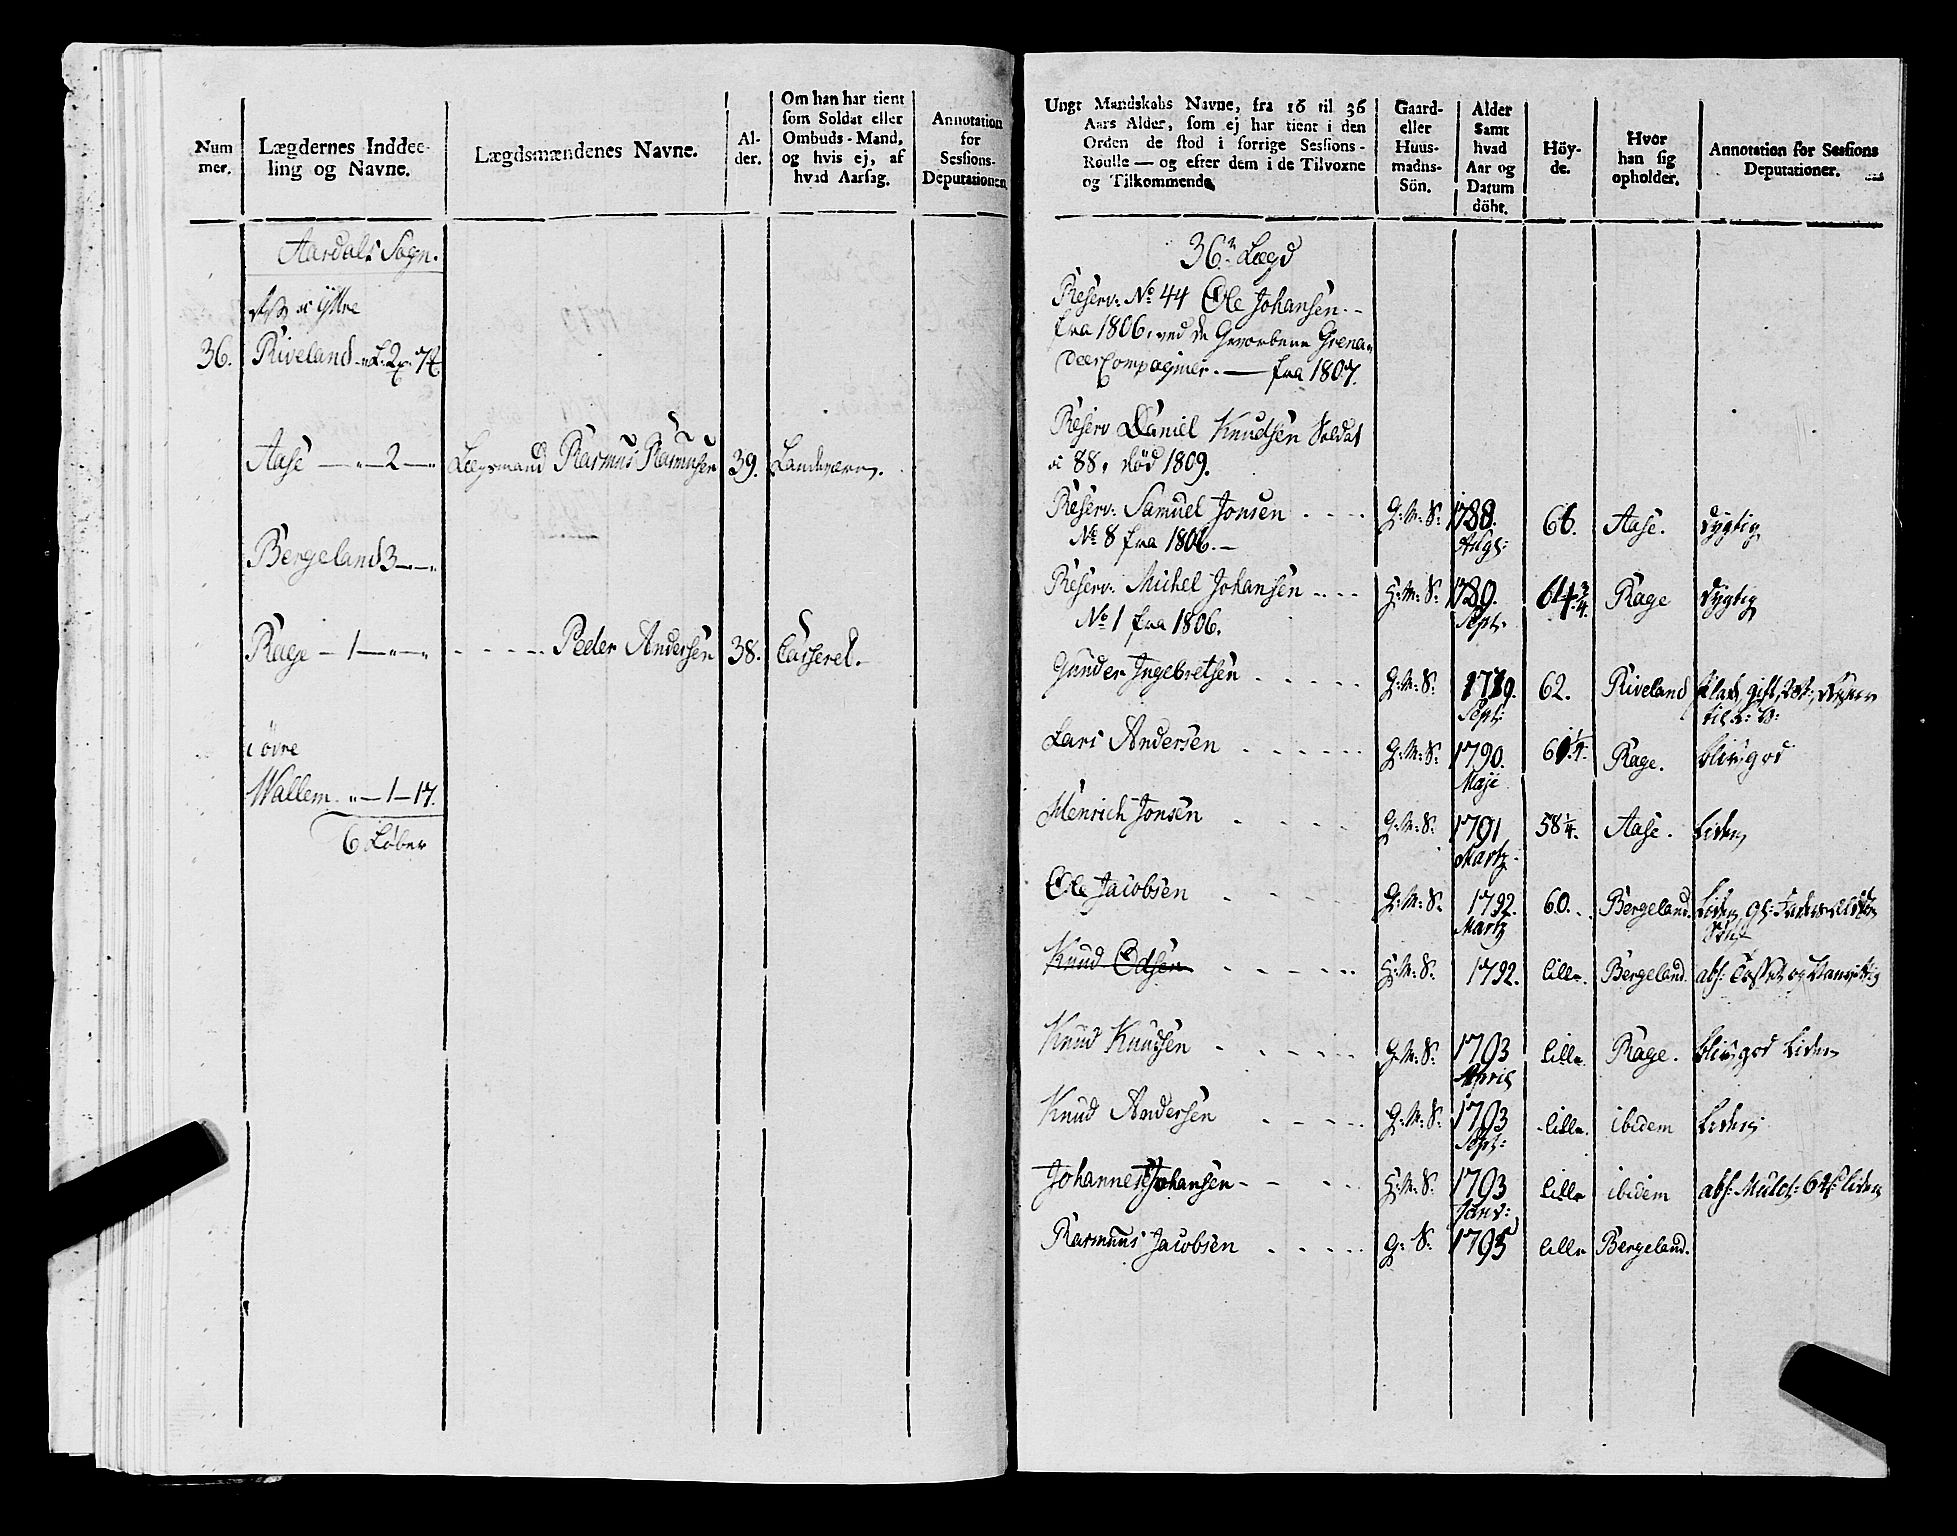 Num
mer.
Lægdernes Inddee-
ling og Navne.
Lægdsmændenes Navne.
Al-
der.
Om han har tient
som Soldat eller
Ombuds-Mand,
og hvis ej, af
hvad Aarsag.
Annotation
for
Sessions-
Deputationen
Aardals Sogn.
Ytre
36. Riveland
Aase — 2 — Lægsmand Rasmus Rasmusen 39. Landværn.
Bergeland 3 —
Rage — 1 — Peder Andersen 38. Casseret.
i øvre
Wallem. — 1 — 17.
6 Løber
Ungt Mandskabs Navne, fra 16 til 36
Aars Alder, som ej har tient i den
Orden de stod i forrige Sessions-
Roulle — og efter dem i de Tilvoxne
og Tilkommende.
Gaard-
eller
Huus-
madns-
Sön.
Alder
samt
hvad
Aar og
Datum
döbt.
Höy-
de.
Hvor
han sig
opholder.
Annotation for Sessions
Deputationer.
36te Lægd
Reserv: No 44 Ole Johansen. —
fra 1806, ved de Gevorbene Grena-
deer Compagnier. — fra 1807.
Reserv Daniel Knudsen Soldat
88, død 1809.
Reserv: Samuel Jonsen G:M:S: 1788. Aase. dygtig
No 8 fra 1806. — Augs:
Reserv: Michel Johansen H:M:S: 1789. 64 3/4. Rage dygtig
No 1 fra 1806. Sept:
Gunder Ingebretsen G:M:S: 62. Riveland
Sept:
Lars Andersen G:M:S: 1790. Rage. bliv: god
Maji
Henrich Jonsen G:M:S: 1791 58 1/4. Aase. liden
Martz
Ole Jacobsen G:M:S. 1792. 60. Bergeland. liden,
Martz
Knud Edsen H:M:S. 1792. lille. Bergeland. abs:
Knud Knudsen G:M:S: 1793 lille Rage. bliv: god liden
April
Knud Andersen G:M:S: 1793 lille. ibidem liden
Sept:
Johannes Johansen H:M:S. 1793 lille ibidem abs: liden
Rasmus Jacobsen G: S. 1795 lille Bergeland.